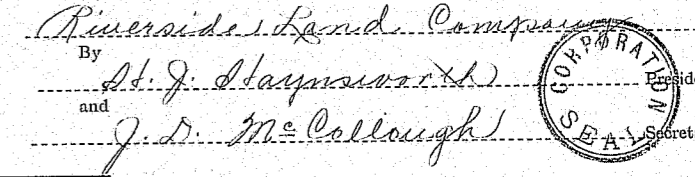 Riverside Land Company
By
H. J. Haynsworth Preside
and
J. D. McCollough Secret
CORPORATION
SEAL